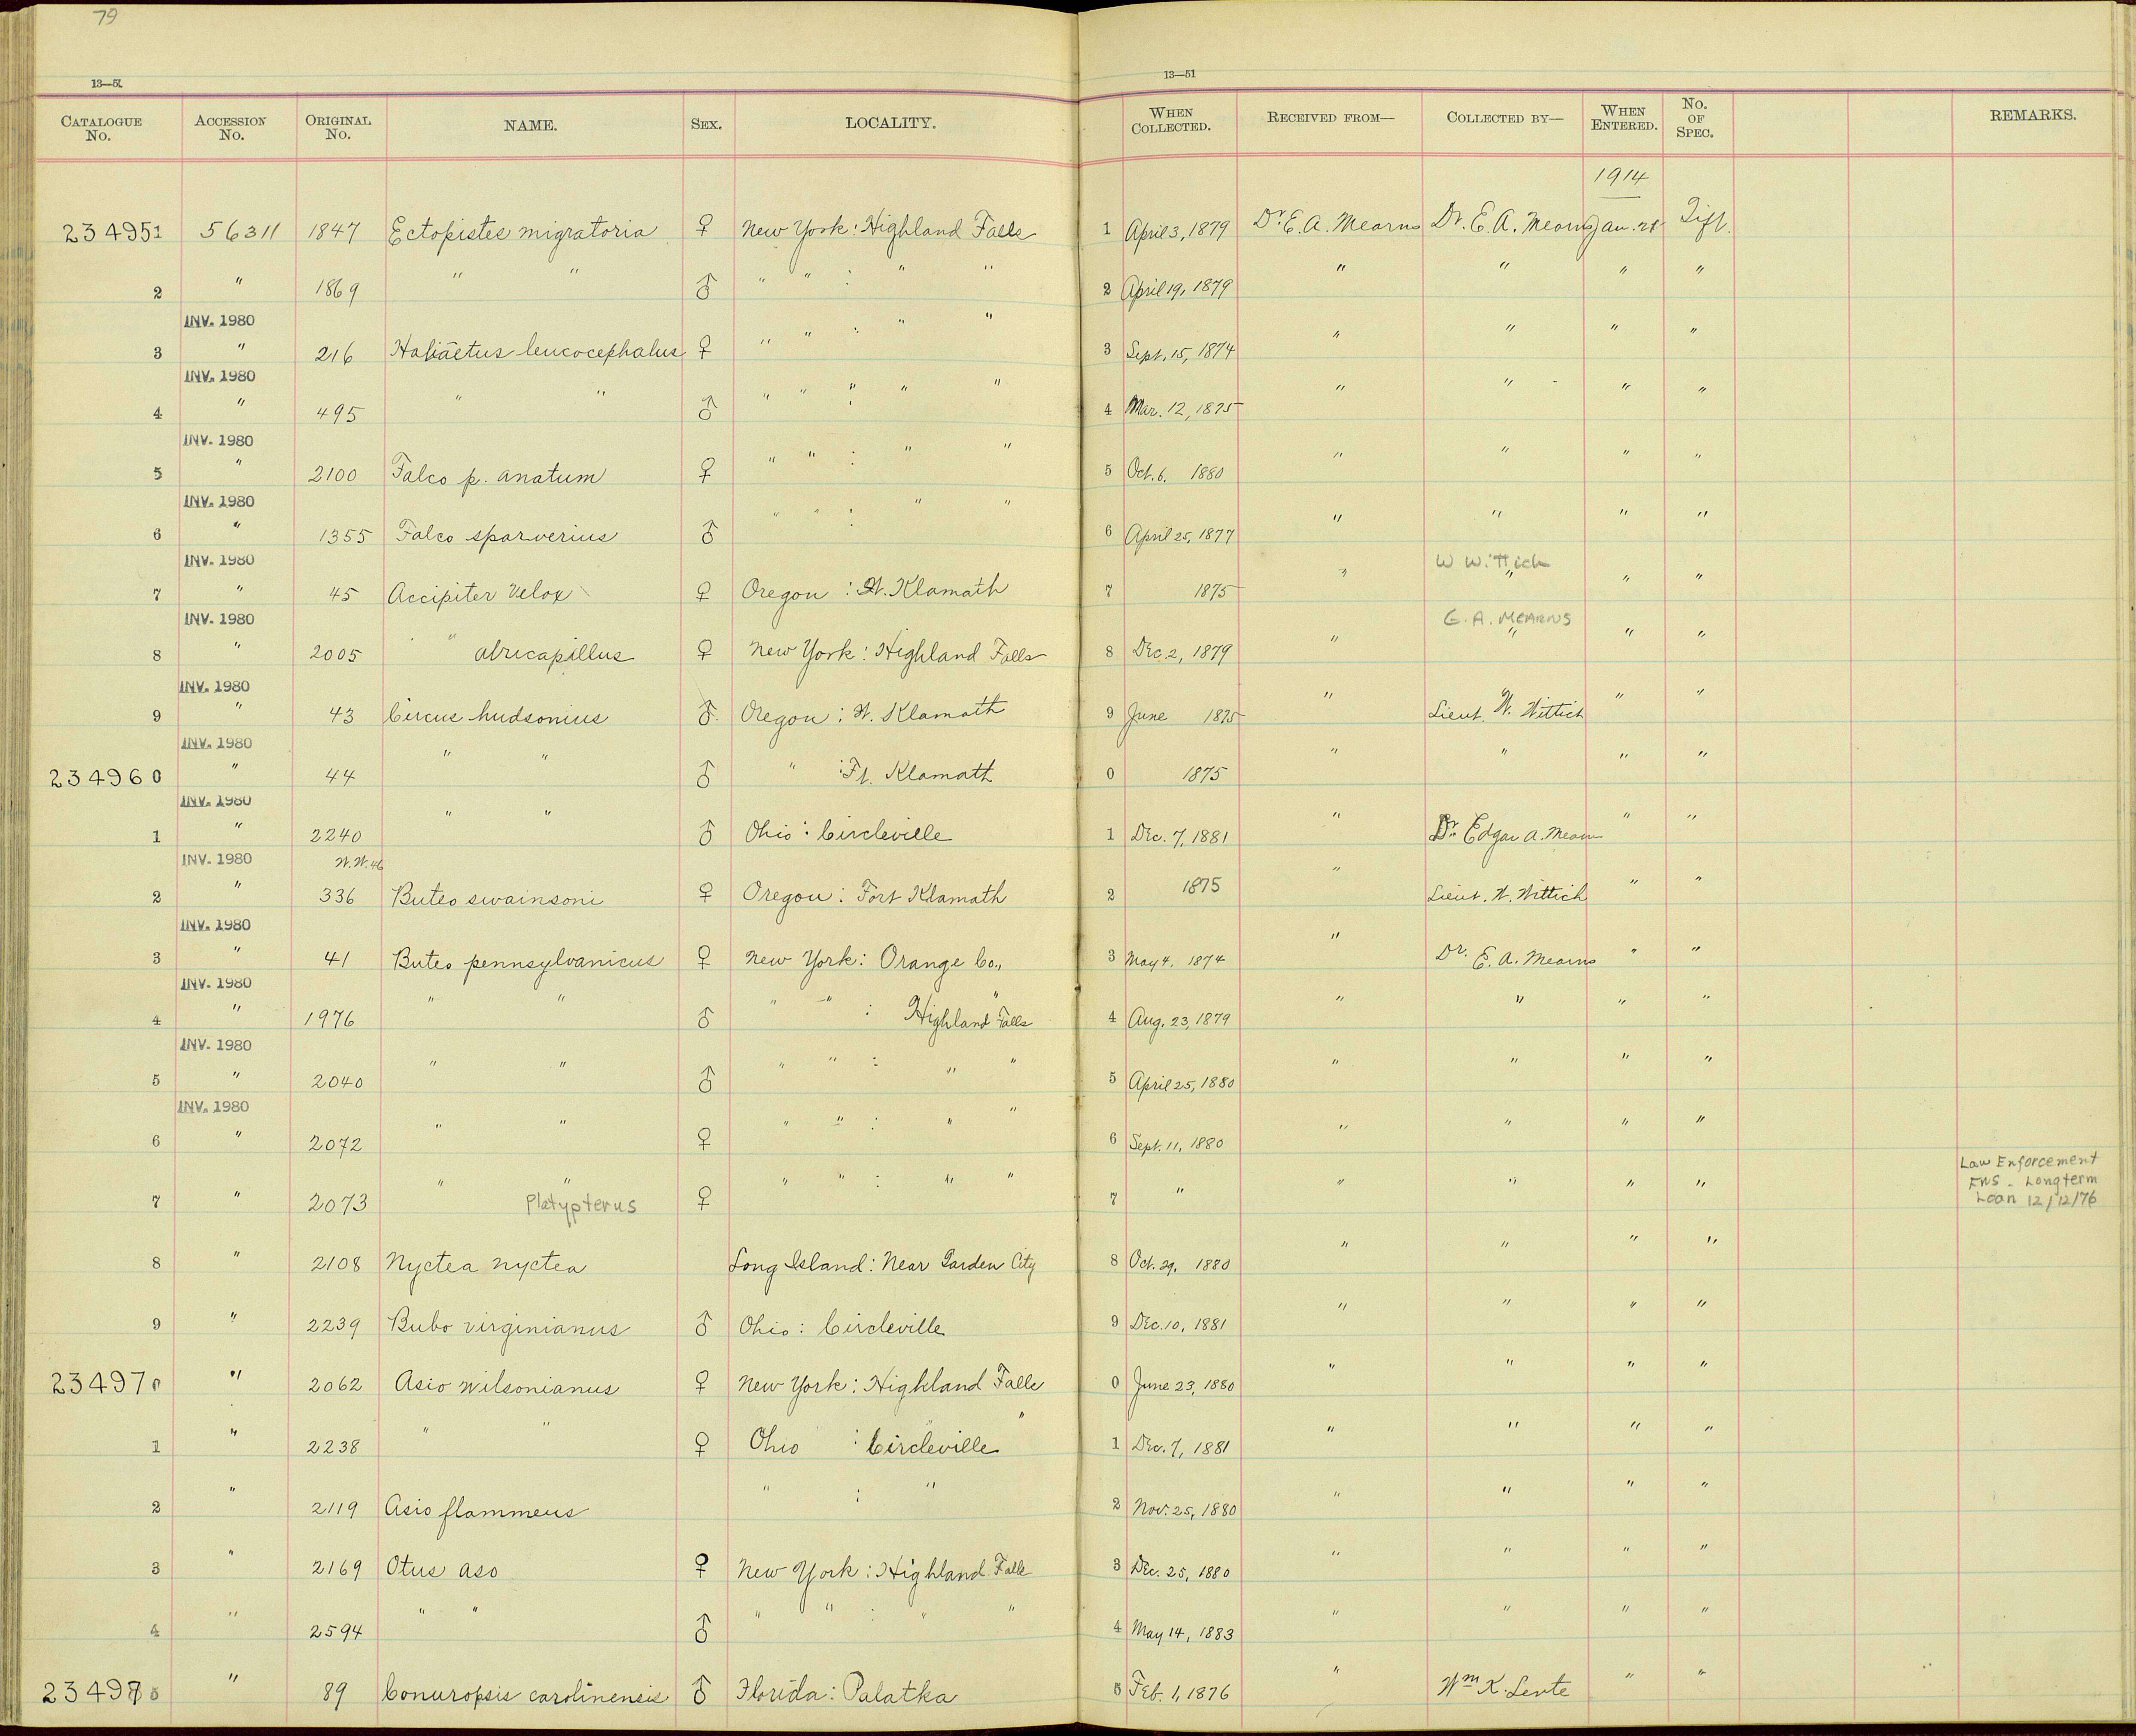 79
13—51
13—51
CATALOGUE No. ACCESSION No. ORIGINAL No. NAME. SEX. LOCALITY. WHEN COLLECTED. RECEIVED FROM— COLLECTED BY— WHEN ENTERED. No. OF SPEC. REMARKS.
1914
234951 56311 1847 Ectopistes migratoria ♀ New York: Highland Falls 1 April 3, 1879 Dr. E. A. Mearns Dr. E. A. Mearns Jan. 28 Gift.
2 " 1869 " " ♂ " " : " " 2 April 19, 1879 " " " "
INV. 1980
3 " 216 Haliäetus leucocephalus ♀ " " : " " 3 Sept. 15, 1874 " " " "
INV. 1980
4 " 495 " " ♂ " " : " " 4 Mar. 12, 1875 " " " "
INV. 1980
5 " 2100 Falco p. anatum ♀ " " : " " 5 Oct. 6. 1880 " " " "
INV. 1980
6 " 1355 Falco sparverius ♂ " " : " " 6 April 25, 1877 " " " "
INV. 1980 W Wittich
7 " 45 Accipiter velox ♀ Oregon : Ft. Klamath 7 1875 " " " "
INV. 1980 E. A. MEARNS
8 " 2005 " atricapillus ♀ New York: Highland Falls 8 Dec. 2, 1879 " " " "
INV. 1980
9 " 43 Circus hudsonius ♂ Oregon : Ft. Klamath 9 June 1875 " Lieut. W. Wittich " "
INV. 1980
234960 " 44 " " ♂ " : Ft. Klamath 0 1875 " " " "
INV. 1980
1 " 2240 " " ♂ Ohio : Circleville 1 Dec. 7, 1881 " Dr. Edgar A. Mearns " "
INV. 1980 W. W. 46
2 " 336 Buteo swainsoni ♀ Oregon : Fort Klamath 2 1875 " Lieut. W. Wittich " "
INV. 1980
3 " 41 Buteo pennsylvanicus ♀ New York: Orange Co., 3 May 4, 1874 " Dr. E. A. Mearns " "
INV. 1980
4 " 1976 " " ♂ " " : " Highland Falls 4 Aug. 23, 1879 " " " "
INV. 1980
5 " 2040 " " ♂ " " : " " 5 April 25, 1880 " " " "
INV. 1980
6 " 2072 " " ♀ " " : " " 6 Sept. 11, 1880 " " " "
7 " 2073 " " Platypterus ♀ " " : " " 7 " " " " " Law Enforcement
FWS - Longterm
Loan 12/12/76
8 " 2108 Nyctea nyctea Long Island: Near Garden City 8 Oct. 29, 1880 " " " "
9 " 2239 Bubo virginianus ♂ Ohio : Circleville 9 Dec. 10, 1881 " " " "
234970 " 2062 Asio wilsonianus ♀ New York: Highland Falls 0 June 23, 1880 " " " "
1 " 2238 " " ♀ Ohio : Circleville " 1 Dec. 7, 1881 " " " "
2 " 2119 Asio flammeus " : " 2 Nov. 25, 1880 " " " "
3 " 2169 Otus aso ♀ New York: Highland Falls 3 Dec. 25, 1880 " " " "
4 " 2594 " " ♂ " " : " " 4 May 14, 1883 " " " "
234975 " 89 Conuropsis carolinensis ♂ Florida: Palatka 5 Feb. 1, 1876 " Wm K. Lente " "